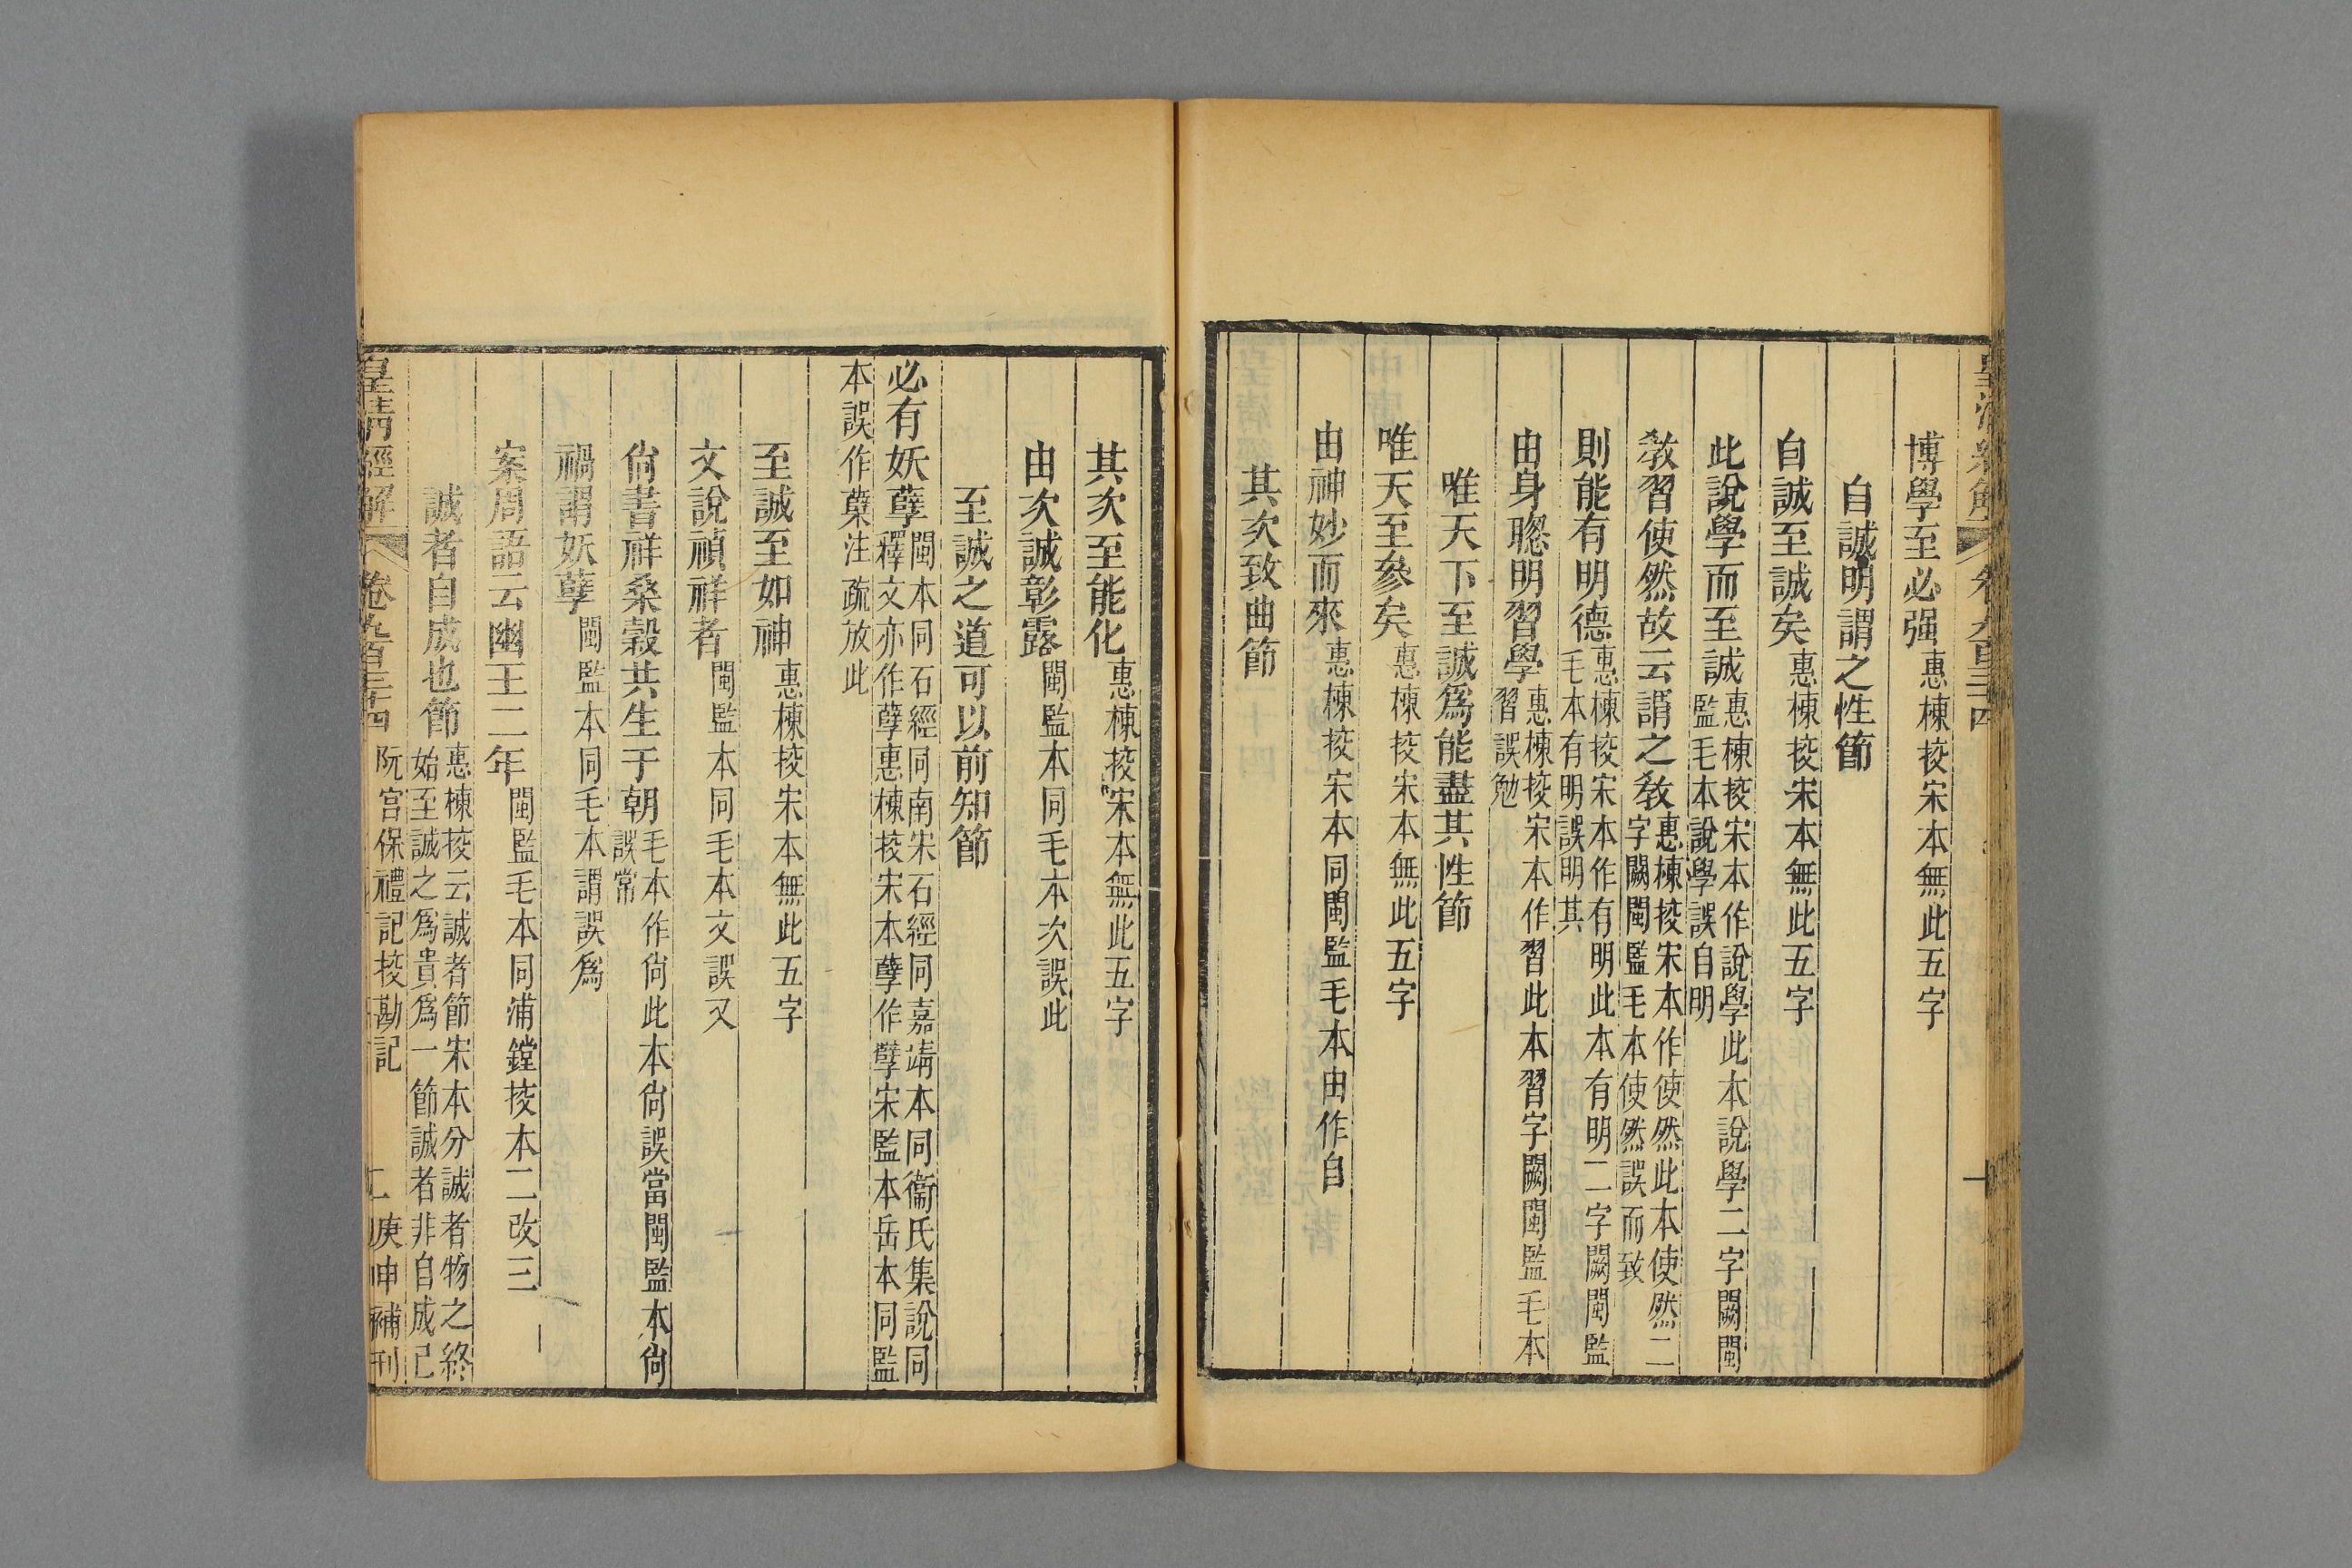 皇清經解
卷九百三十四
博學至必强惠棟挍宋本無此五字
自誠明謂之性節
自誠至誠矣惠棟挍宋本無此五字
此說學而至誠惠棟挍宋本作說學此本說學二字闕閩監毛本說學誤自明
敎習使然故云謂之敎惠棟挍宋本作使然此本使然二字闕閩監毛本使然誤而致
則能有明德惠棟挍宋本作有明此本有明二字闕閩監毛本有明誤明其
由身聰明習學惠棟挍宋本作習此本習字闕閩監毛本習誤勉
唯天下至誠爲能盡其性節
唯天至參矣惠棟挍宋本無此五字
由神妙而來惠棟挍宋本同閩監毛本由作自
其次致曲節
其次至能化惠棟挍宋本無此五字
由次誠彰露閩監本同毛本次誤此
至誠之道可以前知節
必有妖孽閩本同石經同南宋石經同嘉靖本同衞氏集說同釋文亦作孽惠棟挍宋本孽作孼宋監本岳本同監
本誤作蘖注疏放此
至誠至如神惠棟挍宋本無此五字
文說禎祥者閩監本同毛本文誤又
尙書祥桑榖共生于朝毛本作尙此本尙誤當閩監本尙誤常
禍謂妖孽閩監本同毛本謂誤爲
案周語云幽王二年閩監毛本同浦鏜挍本二改三
誠者自成也節惠棟挍云誠者節宋本分誠者物之終始至誠之爲貴爲一節誠者非自成己
皇清經解
卷九百三十四
阮宮保禮記挍勘記
庚申補刊